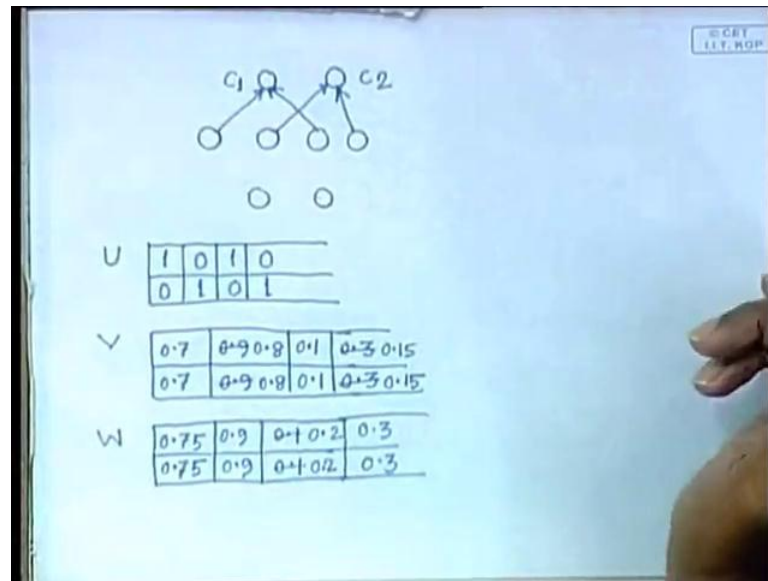 © CET
I.I.T. KGP
C1 C2
U 1 0 1 0
0 1 0 1
V 0.7 0.9 0.8 0.1 0.3 0.15
0.7 0.9 0.8 0.1 0.3 0.15
W 0.75 0.9 0.1 0.2 0.3
0.75 0.9 0.1 0.2 0.3